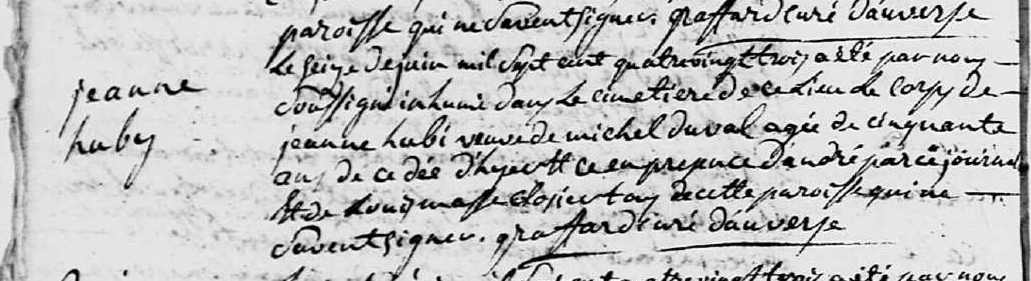 paroisse qui ne savent signer. graffard curé d'auverse
Le seize de juin mil sept cent quatrevingt trois a eté par nous
jeanne
huby
soussigné inhumé dans Le cimetiere de ce Lieu Le corps de
jeanne hubi veuve de michel duval agée de cinquante
ans decedée d'hyer et ce en presence d'andré parcé journal
et de Louis masse tous de cette paroisse qui ne
savent signer. graffard curé d'auverse
trois a eté par nous